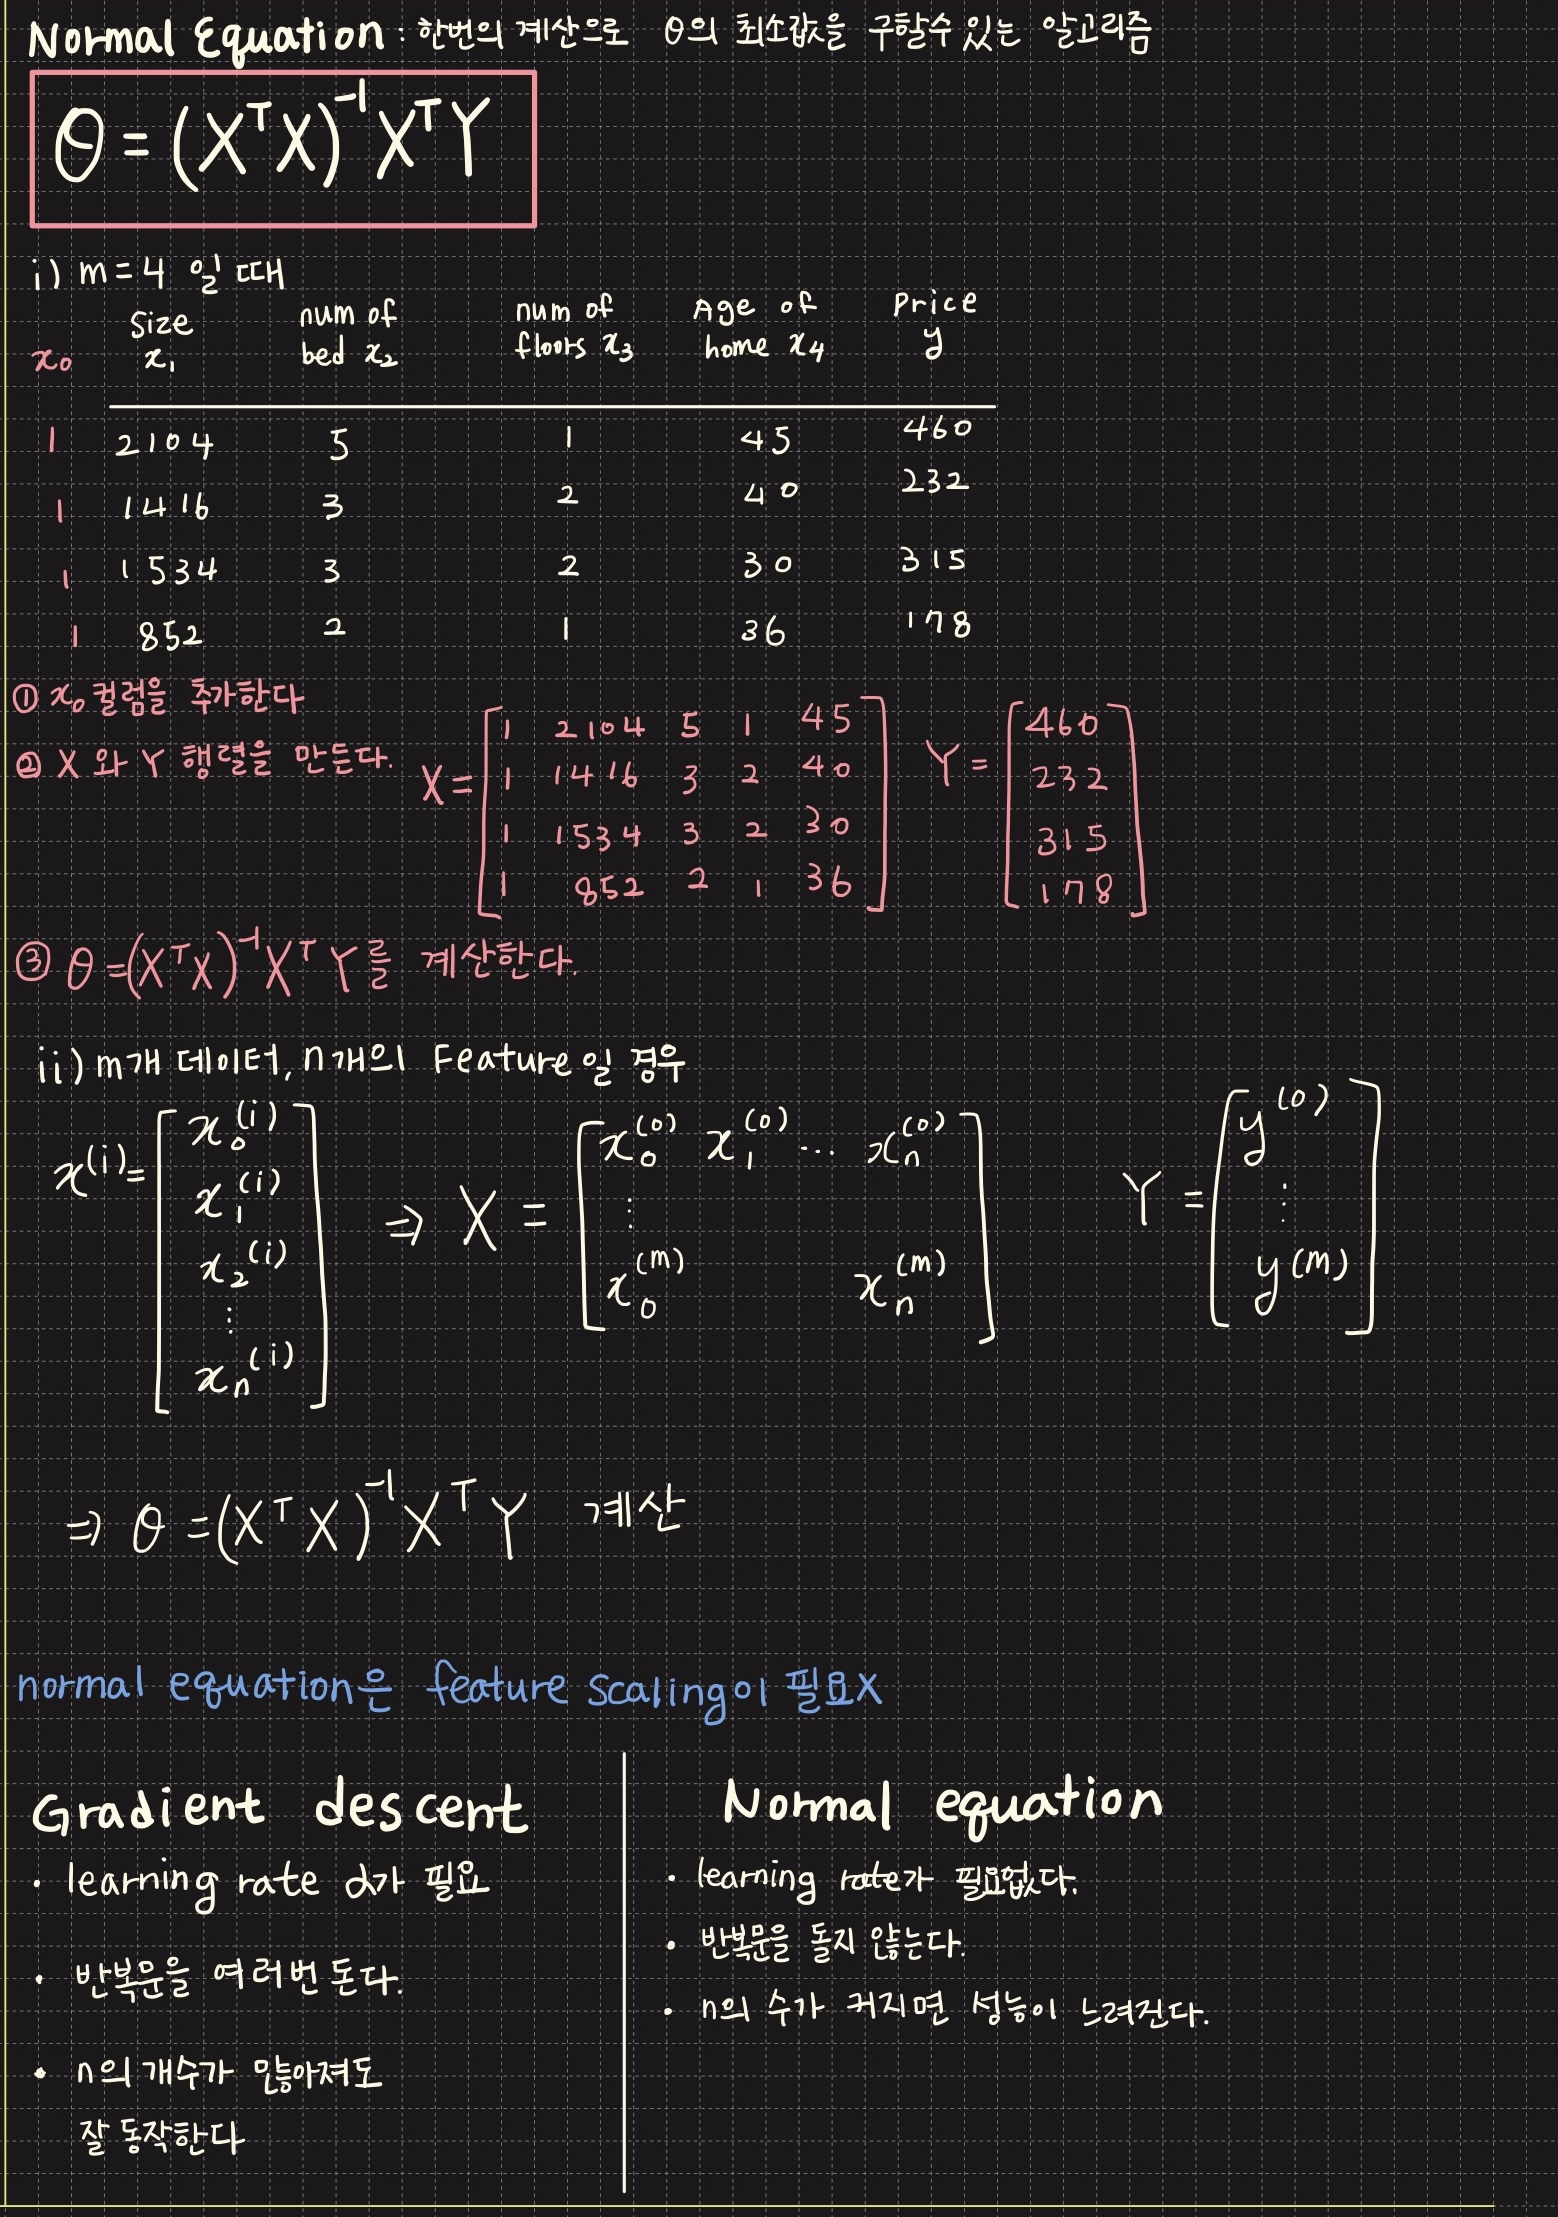 Normal Equation : 한번의 계산으로 θ의 최소값을 구할수 있는 알고리즘
θ = (XᵀX)⁻¹XᵀY
i) m=4 일 때
x₀ Size x₁ num of bed x₂ num of floors x₃ Age of home x₄ Price y
1 2104 5 1 45 460
1 1416 3 2 40 232
1 1534 3 2 30 315
1 852 2 1 36 178
① x₀ 컬럼을 추가한다
② X 와 Y 행렬을 만든다.
X = [1 2104 5 1 45
1 1416 3 2 40
1 1534 3 2 30
1 852 2 1 36]
Y = [460
232
315
178]
③ θ = (XᵀX)⁻¹XᵀY를 계산한다.
ii) m개 데이터, n개의 Feature일 경우
x⁽ⁱ⁾ = [x₀⁽ⁱ⁾
x₁⁽ⁱ⁾
x₂⁽ⁱ⁾
⋮
xₙ⁽ⁱ⁾]
⇒ X = [x₀⁽⁰⁾ x₁⁽⁰⁾ … xₙ⁽⁰⁾
⋮
x₀⁽ᵐ⁾ xₙ⁽ᵐ⁾]
Y = [y⁽⁰⁾
⋮
y⁽ᵐ⁾]
⇒ θ = (XᵀX)⁻¹XᵀY 계산
normal equation은 feature scaling이 필요X
Gradient descent
• learning rate α가 필요
• 반복문을 여러번 돈다.
• n의 개수가 많아져도
잘 동작한다
Normal equation
• learning rate가 필요없다.
• 반복문을 돌지 않는다.
• n의 수가 커지면 성능이 느려진다.